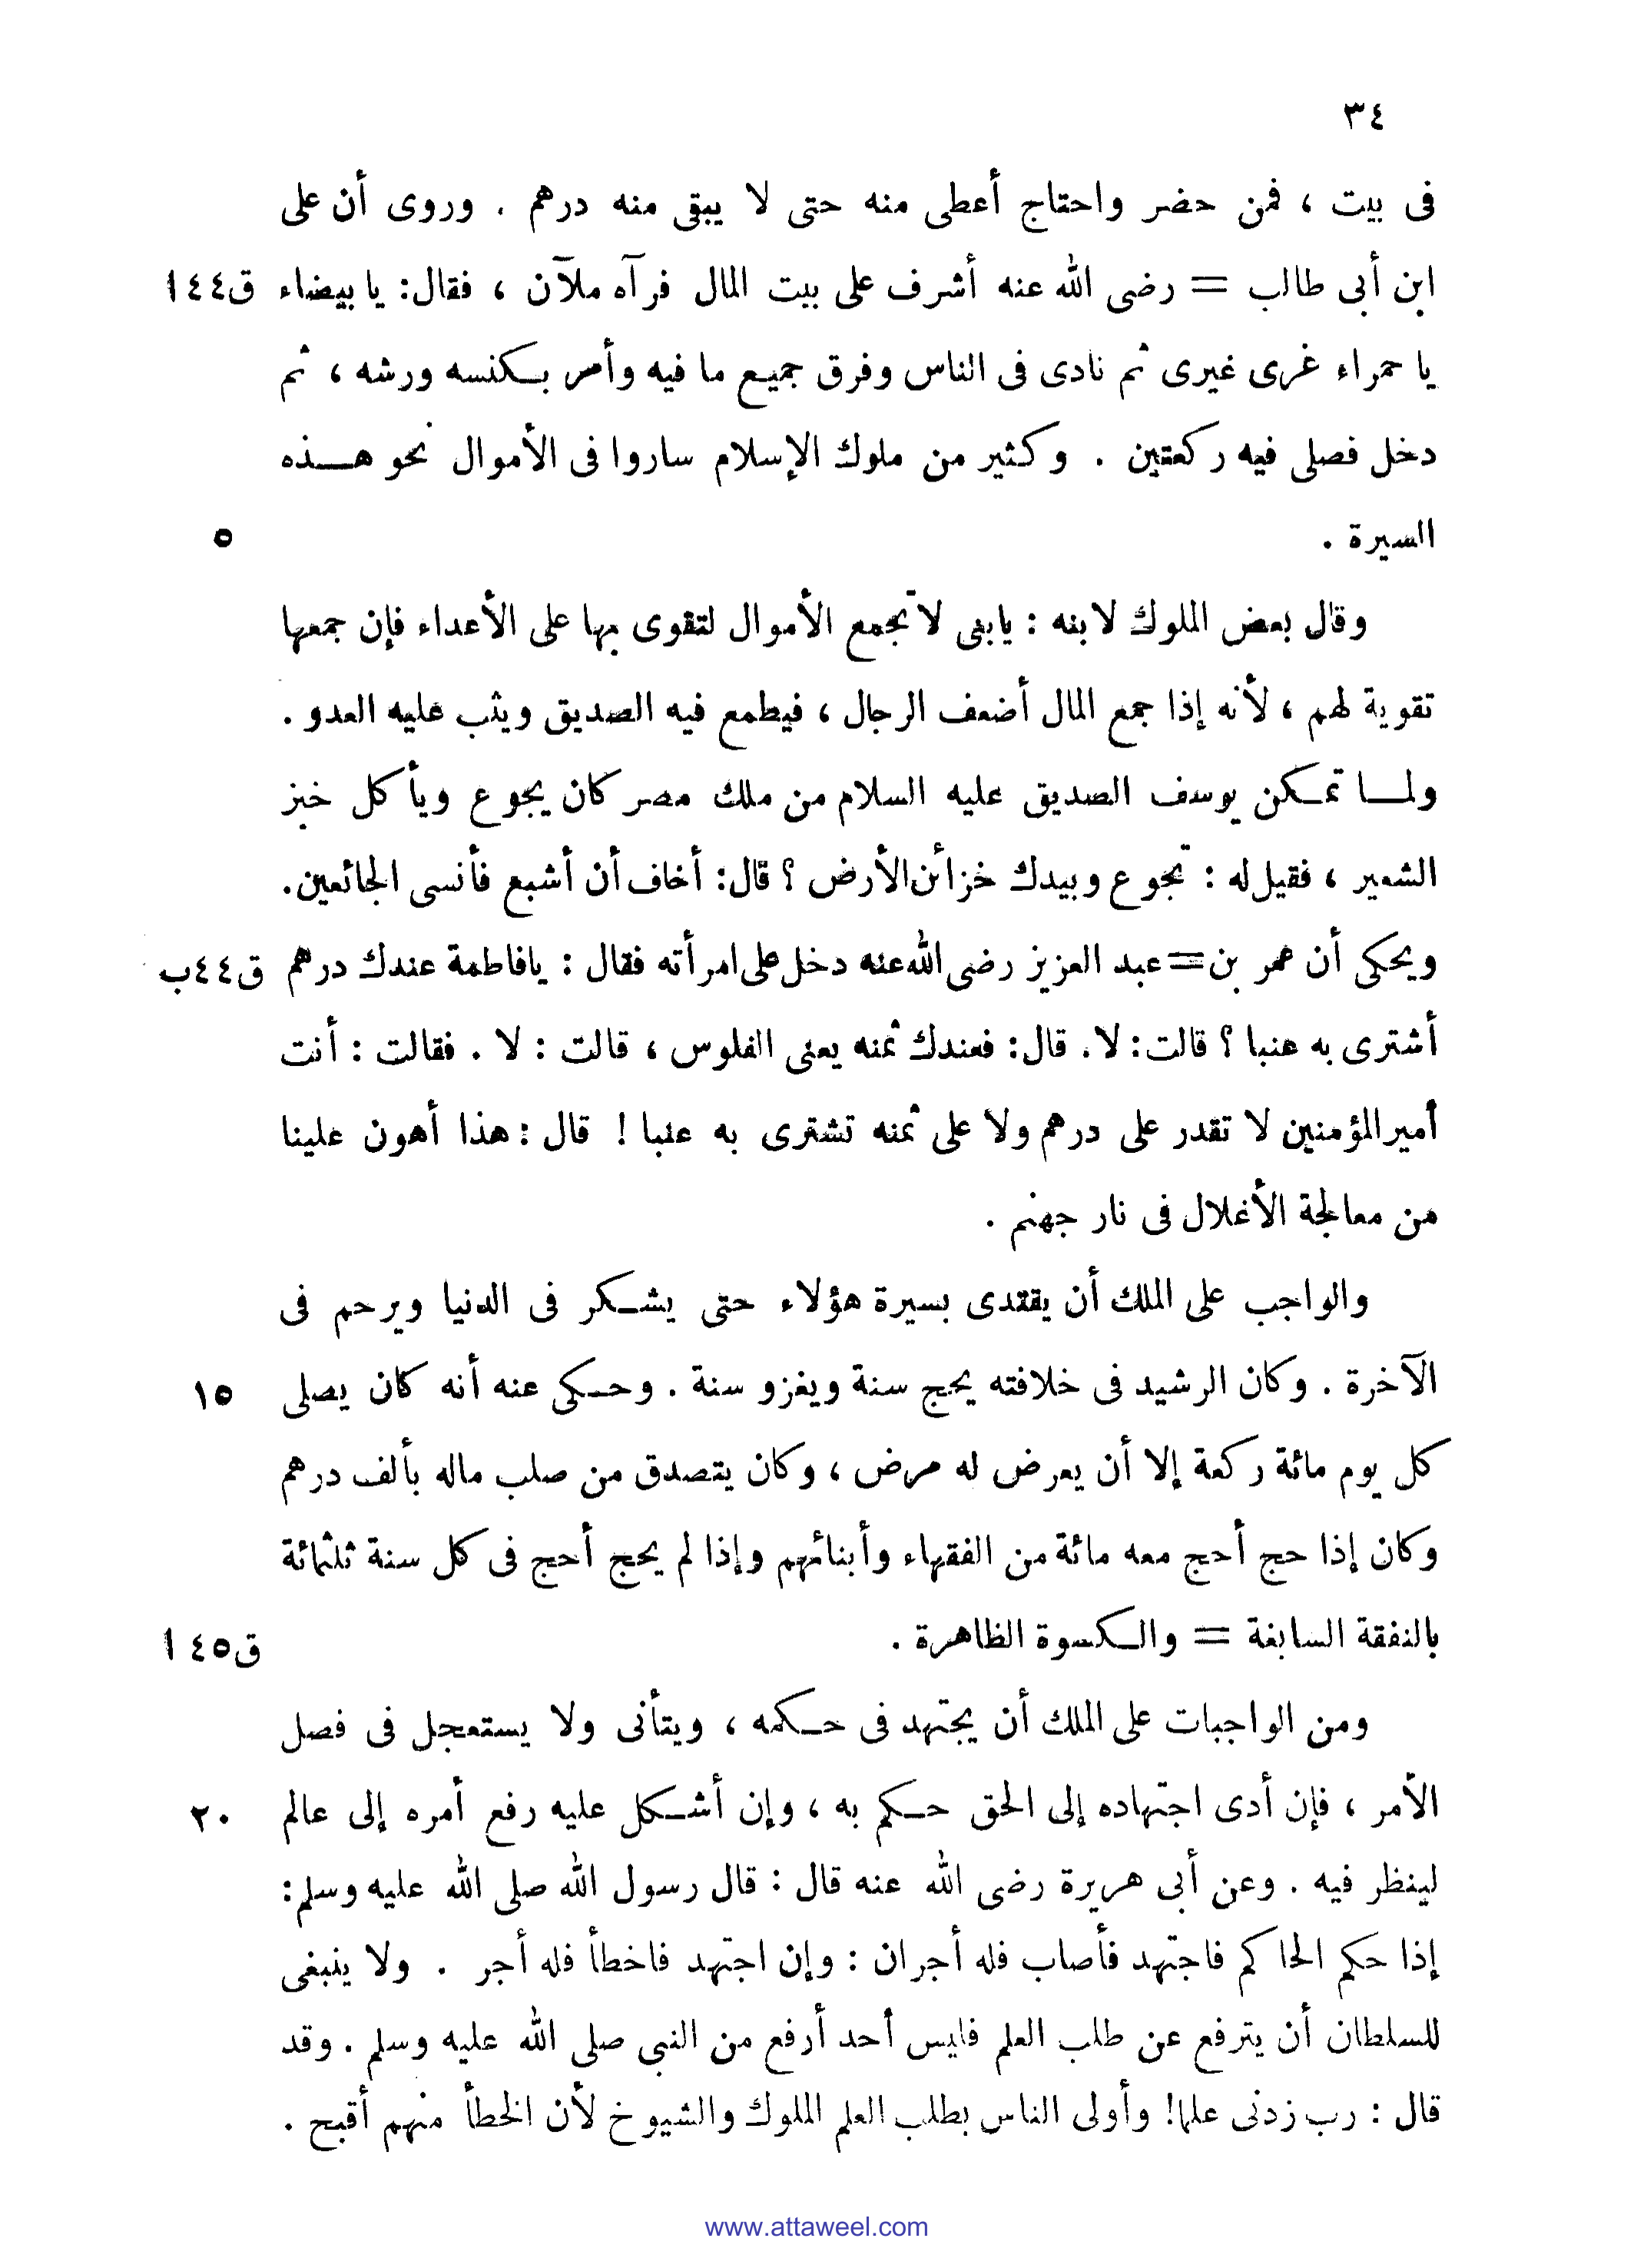 ٣٤
فى بيت ، فمن حضر واحتاج أعطى منه حتى لا يبقى منه درهم . وروى أن على
ابن أبى طالب = رضى الله عنه أشرف على بيت المال فرآه ملآن ، فقال: يا بيضاء ق١٤٤
يا حمراء غرى غيرى ثم نادى فى الناس وفرق جميع ما فيه وأمر بكنسه ورشه ، ثم
دخل فصلى فيه ركعتين . وكثير من ملوك الإسلام ساروا فى الأموال نحو هذه
السيرة . ٥
وقال بعض الملوك لابنه : يابنى لا تجمع الأموال لتقوى بها على الأعداء فإن جمعها
تقوية لهم ، لأنه إذا جمع المال أضعف الرجال ، فيطمع فيه الصديق ويثب عليه العدو .
ولما تمكن يوسف الصديق عليه السلام من ملك مصر كان يجوع ويأكل خبز
الشعير ، فقيل له : تجوع وبيدك خزائن الأرض ؟ قال: أخاف أن أشبع فأنسى الجائعين.
ويحكى أن عمر بن = عبد العزيز رضى الله عنه دخل على امرأته فقال : يافاطمة عندك درهم ق٤٤ب
أشترى به عنبا ؟ قالت: لا. قال: فعندك ثمنه يعنى الفلوس ، قالت : لا . فقالت : أنت
أمير المؤمنين لا تقدر على درهم ولا على ثمنه تشترى به عنبا ! قال : هذا أهون علينا
من معالجة الأغلال فى نار جهنم .
والواجب على الملك أن يقتدى بسيرة هؤلاء حتى يشكر فى الدنيا ويرحم فى
الآخرة . وكان الرشيد فى خلافته يحج سنة ويغزو سنة . وحكى عنه أنه كان يصلى ١٥
كل يوم مائة ركعة إلا أن يعرض له مرض ، وكان يتصدق من صلب ماله بألف درهم
وكان إذا حج أحج معه مائة من الفقهاء وأبنائهم وإذا لم يحج أحج فى كل سنة ثلثمائة
بالنفقة السابغة = والكسوة الظاهرة . ق١٤٥
ومن الواجبات على الملك أن يجتهد فى حكمه ، ويتأنى ولا يستعجل فى فصل
الأمر ، فإن أدى اجتهاده إلى الحق حكم به ، وإن أشكل عليه رفع أمره إلى عالم ٢٠
لينظر فيه . وعن أبى هريرة رضى الله عنه قال : قال رسول الله صلى الله عليه وسلم:
إذا حكم الحاكم فاجتهد فأصاب فله أجران : وإن اجتهد فاخطأ فله أجر . ولا ينبغى
للسلطان أن يترفع عن طلب العلم فليس أحد أرفع من النبى صلى الله عليه وسلم . وقد
قال : رب زدنى علما! وأولى الناس بطلب العلم الملوك والشيوخ لأن الخطأ منهم أقبح .
www.attaweel.com